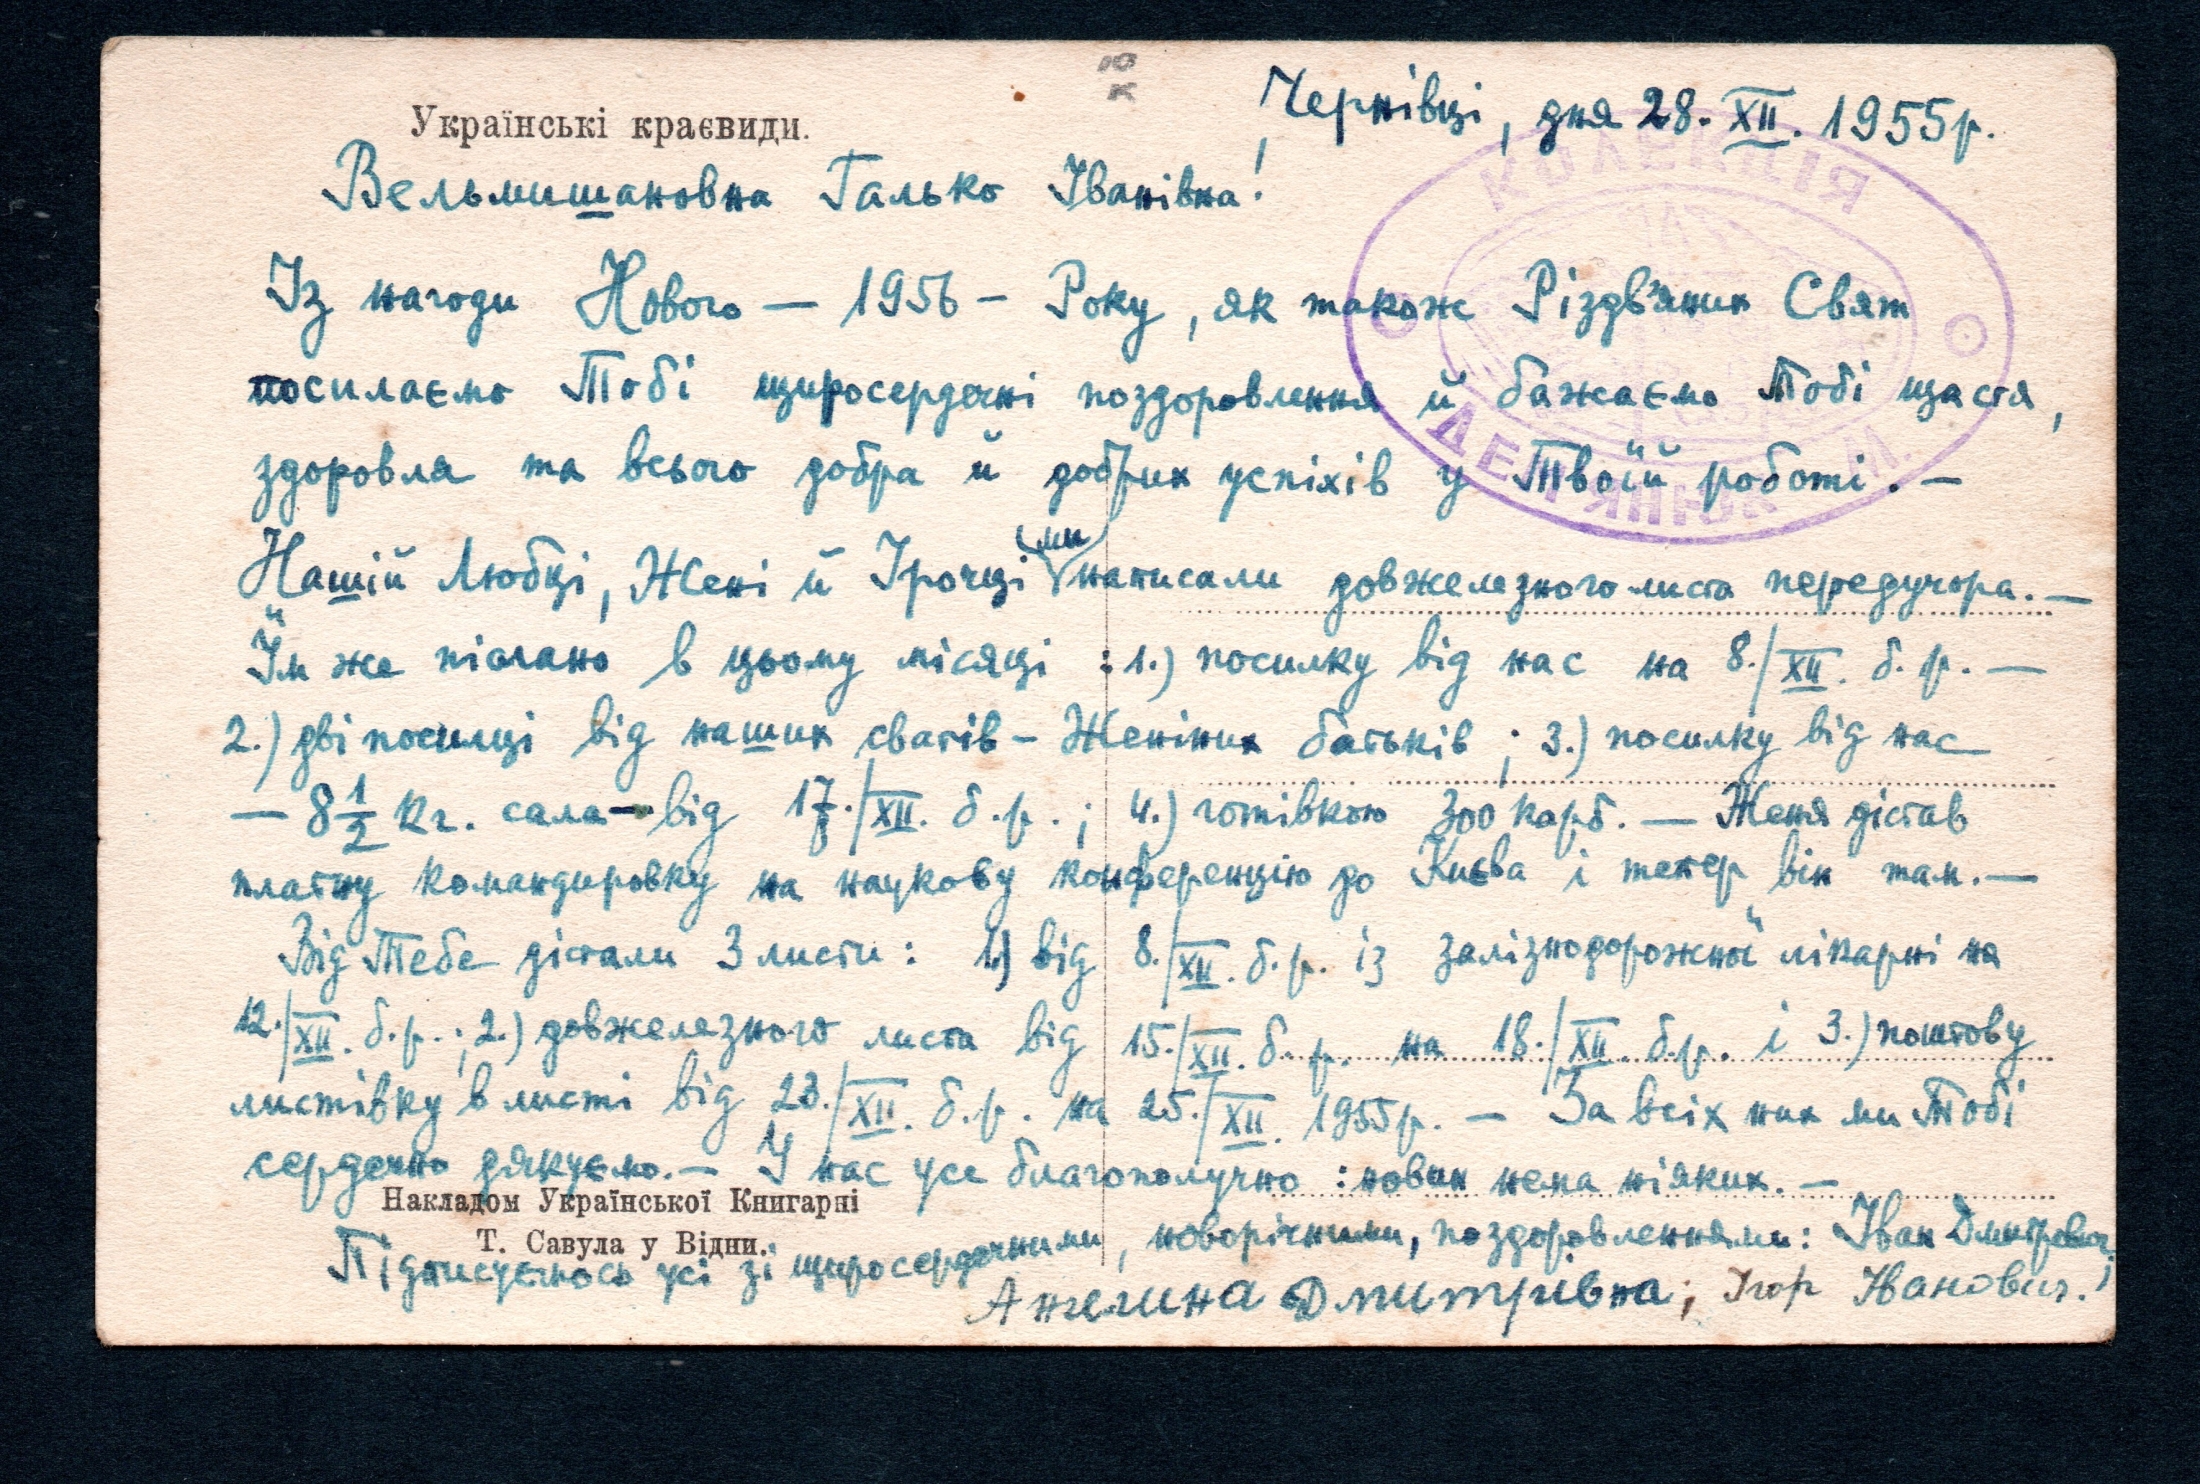 Ю
К
Українські краєвиди.
Чернівці, дня 28. XII. 1955р.
КОЛЕКЦІЯ
Вельмишановна Галько Іванівна!
Із нагоди Нового — 1956 — Року, як також Різдв'яних Свят
посилаємо Тобі щиросердечні поздоровлення й бажаємо Тобі щастя,
здоровля та всього добра й добрих успіхів у Твоїй роботі. —
Нашій Любці, Жені й Ірочці (ми) написали довжелезного листа передучора. —
Їм же післано в цьому місяці : 1.) посилку від нас на 8./XII. б. р. —
2.) дві посилці від наших сватів — Женіних батьків ; 3.) посилку від нас
— 8 1/2 кг. сала — від 17./XII. б. р. ; 4.) готівкою 300 карб. — Женя дістав
платну командировку на наукову конференцію до Києва і тепер він там. —
Від Тебе дістали 3 листи : 1.) від 8./XII. б. р. із залізнодорожної лікарні на
12./XII. б. р. ; 2.) довжелезного листа від 15./XII. б. р. на 18./XII. б. р. і 3.) поштову
листівку в листі від 23./XII. б. р. на 25./XII. 1955р. — За всіх них ми Тобі
сердечно дякуємо. — У нас усе благополучно : новин нема ніяких. —
Накладом Української Книгарні
Т. Савула у Відни.
Підписуємось усі зі щиросердечними, новорічними, поздоровленнями : Іван Дмитрович;
Ангелина Дмитрівна ; Ігор Іванович.